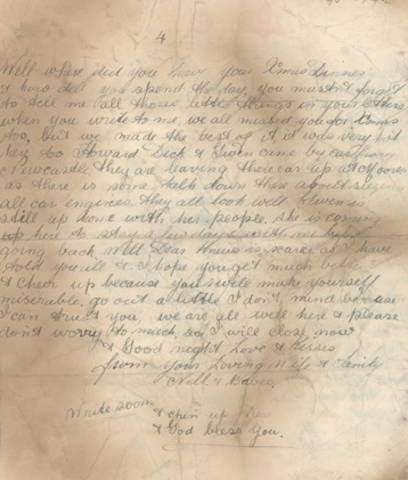 4
Well where did you have your Xmas Dinner
& how did you spend the day, you mustn't forget
to tell me all those little things in your letters
when you write to me, we all missed you for Xmas
too, but we made the best of it, it was very hot
here too Howard Dick & Gwen came by car from
Newcastle they are leaving their car up at Moores
as there is some talk down there about
all car engines. they all look well Gwen is
still up home with her people, she is coming
up here to stay a few days with me before
going back. Well Dear news is scarce as I have
told you all & I hope you get much better
& cheer up because you will make yourself
miserable. go out a little I don't mind because
I can trust you, we are all well here & please
don't worry to much, so I will close now
& Good night Love & Kisses
from your Loving Wife & Family
Nell & Babes.
Write soon & chin up
& God bless you.